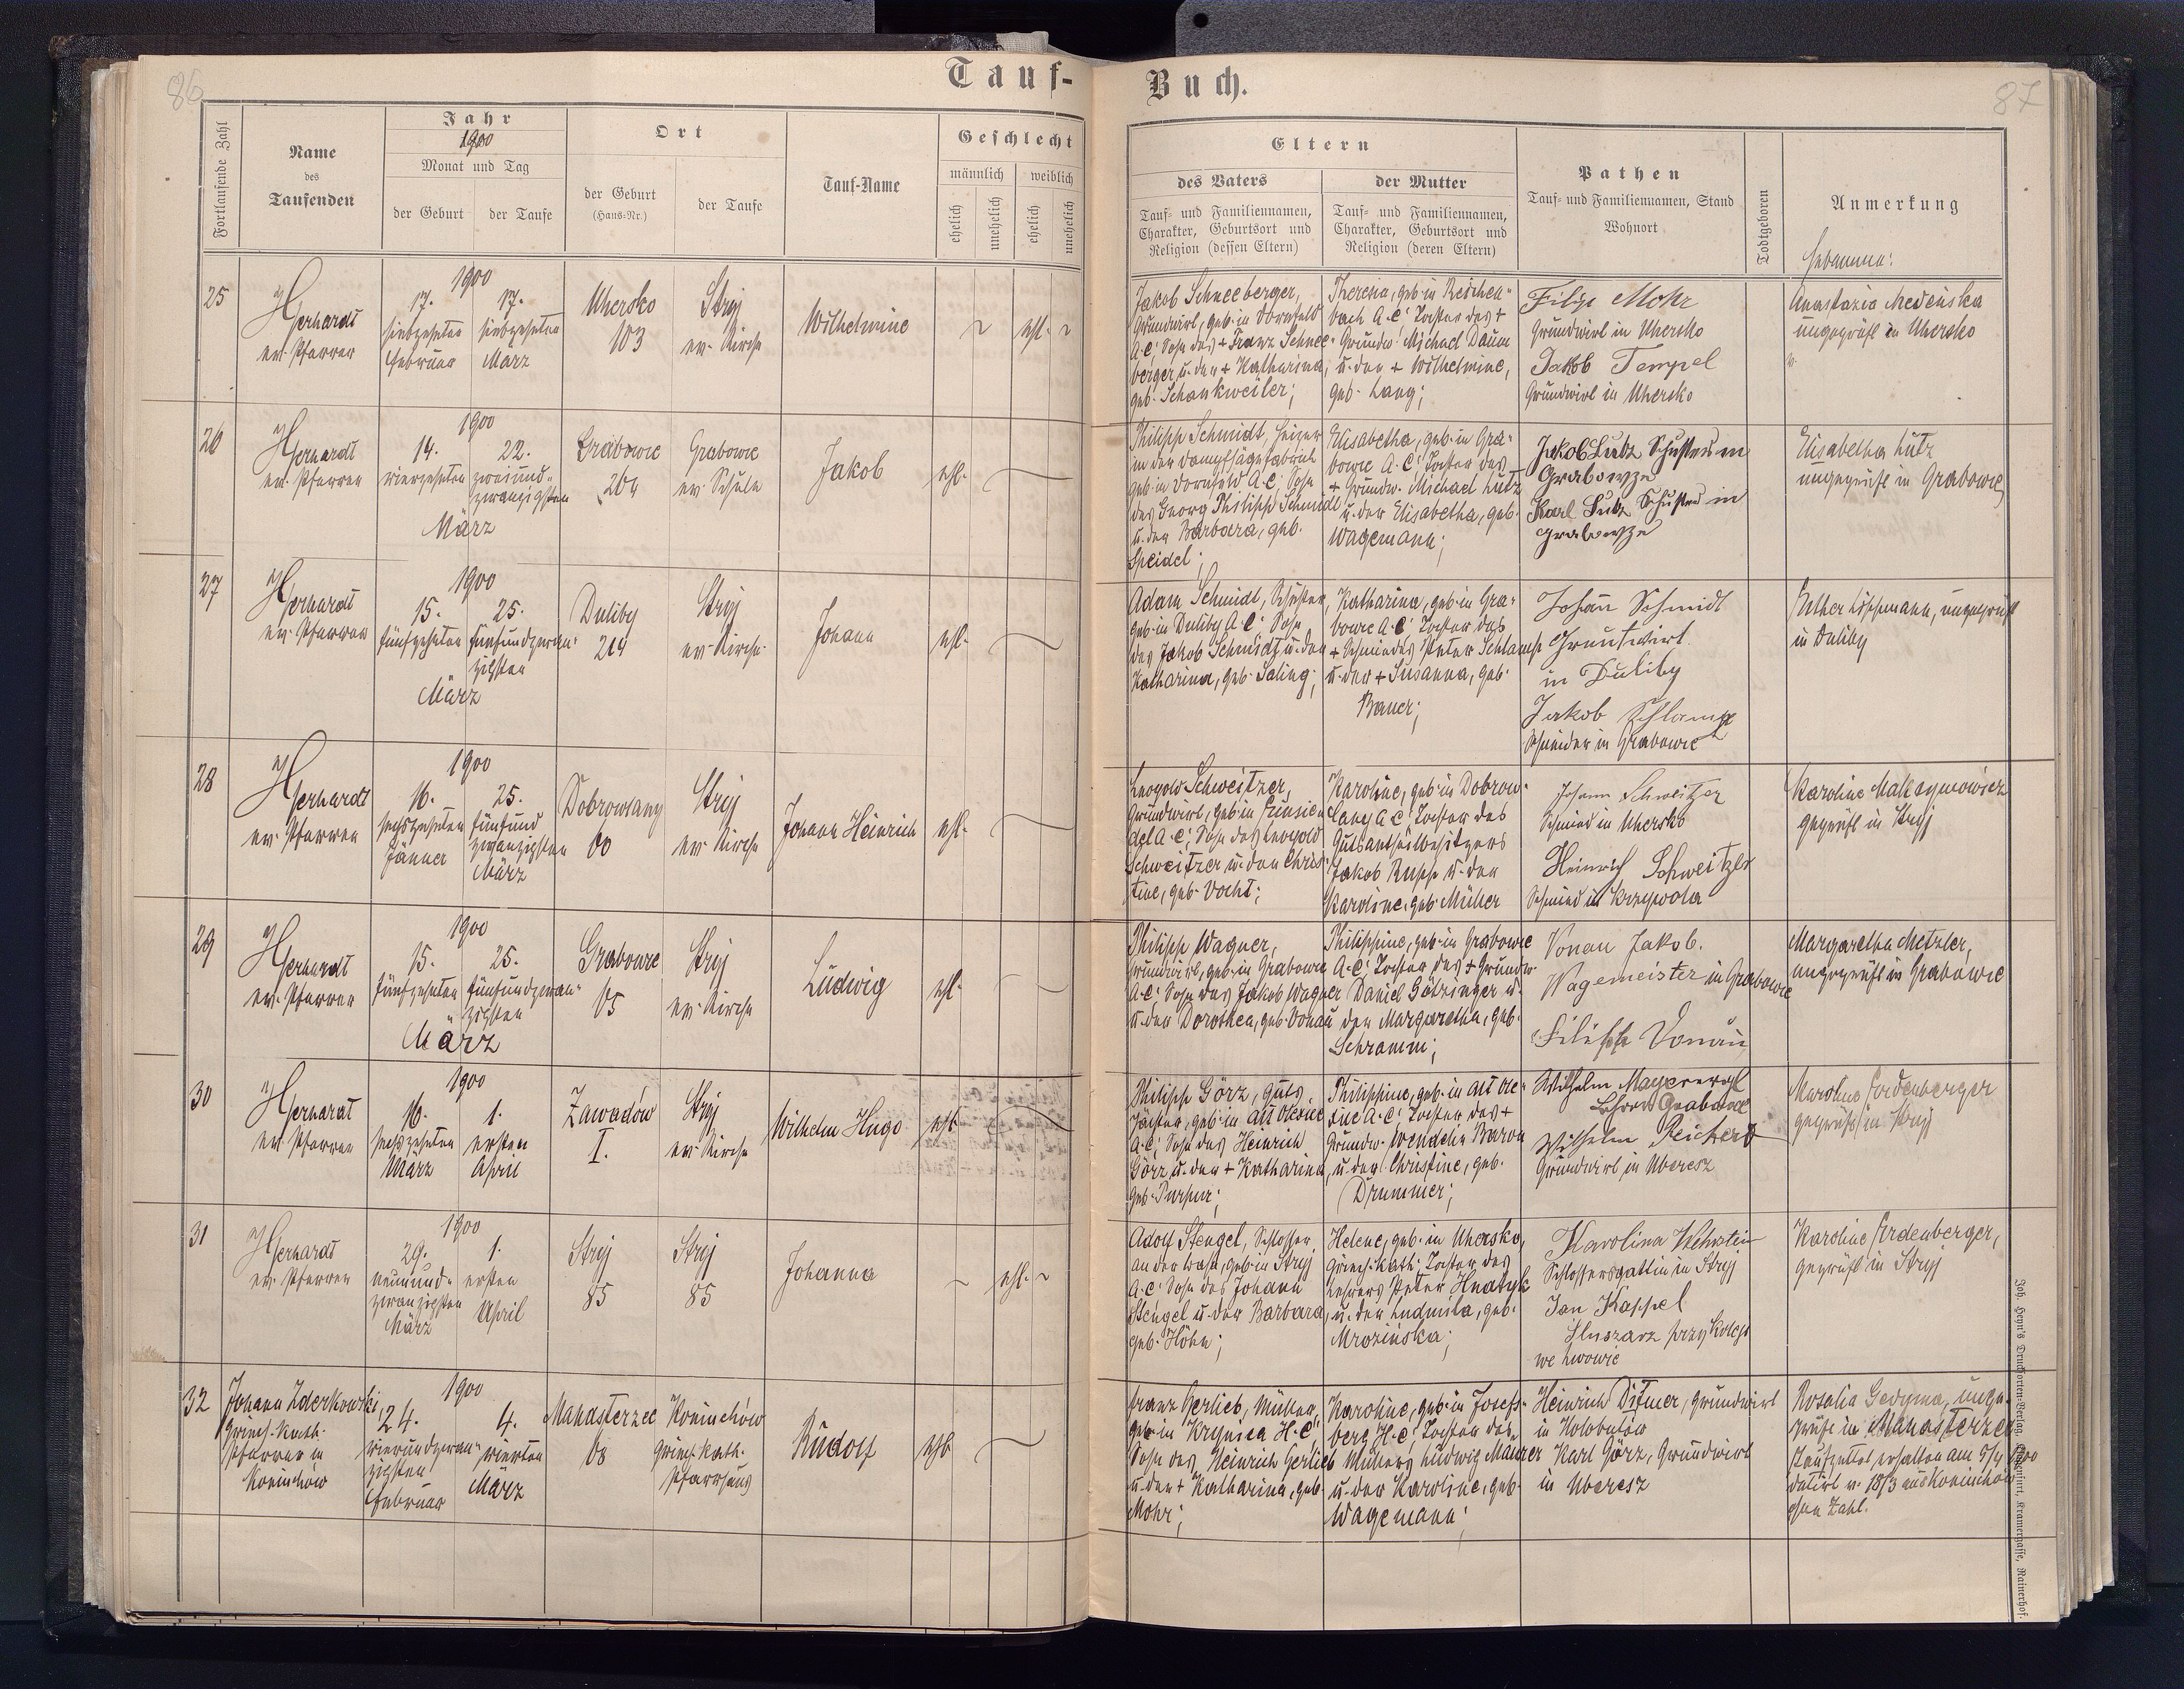 86
Tauf-
Buch.
87
Fortlaufende Zahl
Name
des
Taufenden
Jahr
1900
Monat und Tag
der Geburt
der Taufe
Ort
der Geburt
(Haus-Nr.)
der Taufe
Tauf-Name
Geschlecht
männlich
weiblich
ehelich
unehelich
ehelich
unehelich
Eltern
des Vaters
Tauf- und Familiennamen,
Charakter, Geburtsort und
Religion (dessen Eltern)
der Mutter
Tauf- und Familiennamen,
Charakter, Geburtsort und
Religion (deren Eltern)
Pathen
Tauf- und Familiennamen, Stand
Wohnort
Todtgeboren
Anmerkung
Hebamme:
25
Gerhardt
ev. Pfarrer
1900
17.
siebzehnten
Februar
17.
siebzehnten
März
Uhersko
103
Stryj
ev. Kirche
Wilhelmine
ehl.
Jakob Schneeberger,
Grundwirt, geb. in Dornfeld
A.C. Sohn des + Franz Schnee-
berger u. der + Katharina,
geb. Schankweiler;
Theresia, geb. in Reichen-
bach A.C. Tochter des +
Grundw. Michael Daum
u. der + Wilhelmine,
geb. Lang;
Filip Mohr
Grundwirt in Uhersko
Jakob Tempel
Grundwirt in Uhersko
Anastazia Medeńska
ungeprüft in Uhersko
26
Gerhardt
ev. Pfarrer
1900
14.
vierzehnten
22.
zweiund-
zwanzigsten
März
Grabowce
204
Grabowce
ev. Schule
Jakob
ehl.
Philipp Schmidt, Heizer
in der Dampfsägefabrik
geb. in Dornfeld A.C. Sohn
des Georg Philipp Schmidt
u. der Barbara, geb.
Speidel;
Elisabetha, geb. in Gra-
bowce A.C. Tochter des
+ Grundw. Michael Lutz
u. der Elisabetha, geb.
Wagemann;
Jakob Lutz Schuster in
Grabowze
Karl Lutz Schuster in
grabowze
Elisabetha Lutz
ungeprüft in Grabowce
27
Gerhardt
ev. Pfarrer
1900
15.
fünfzehnten
25.
fünfundzwan-
zigsten
März
Duliby
214
Stryj
ev. Kirche
Johann
ehl.
Adam Schmidt, Schuster,
geb. in Duliby A.C. Sohn
des Jakob Schmidt u. der
Katharina, geb. Saling;
Katharina, geb. in Gra-
bowce A.C. Tochter des
+ Schmiedes Peter Schlamp
u. der + Susanna, geb.
Bauer;
Johann Schmidt
Gruntwirt
in Duliby
Jakob Schlamp
Schneider in Grabowce
Esther Lippmann, ungeprüft
in Duliby
28
Gerhardt
ev. Pfarrer
1900
16.
sechszehnten
Jänner
25.
fünfund
zwanzigsten
März
Dobrowlany
60
Stryj
ev. Kirche
Johann Heinrich
ehl.
Leopold Schweitzer,
Grundwirt, geb. in Einsie-
del A.C. Sohn des Leopold
Schweitzer u. der Chris-
tine, geb. Vocht;
Karoline, geb. in Dobrow-
lany A.C. Tochter des
Gutsantheilbesitzers
Jakob Rupp u. der
Karoline, geb. Müller
Johann Schweitzer
Schmied in Uhersko
Heinrich Schweitzer
Schmied in Krzywola
Karoline Maksymowicz
geprüft in Stryj
29
Gerhardt
ev. Pfarrer
1900
15.
fünfzehnten
25.
fünfundzwan-
zigsten
März
Grabowce
65
Stryj
ev. Kirche
Ludwig
ehl.
Philipp Wagner,
Grundwirt, geb. in Grabowce
A.C. Sohn des Jakob Wagner
u. der Dorothea, geb. Vonau
Philippine, geb. in Grabowce
A.C. Tochter des + Grundw.
Daniel Götzinger u.
der Margaretha, geb.
Schramm;
Vonau Jakob.
Wagemeister in Grabowce
Filipp Vonau
Margaretha Metzler,
ungeprüft in Grabowce
30
Gerhardt
ev. Pfarrer
1900
16.
sechszehnten
März
1.
ersten
April
Zawadów
I.
Stryj
ev. Kirche
Wilhelm Hugo
ehl.
Philipp Görz, Guts
pächter, geb. in Alt Oleksice
A.C. Sohn des Heinrich
Görz u. der + Katharina,
geb. Purpur;
Philippine, geb. in Alt Ole-
xice A.C. Tochter des +
Grundw. Wendelin Baron
u. der Christine, geb.
Drummer;
Wilhelm Mayer
Lehrer Grabowce
Wilhelm Reichert
Grundwirt in Uberesz
Karoline Ordenberger
geprüft in Stryj
31
Gerhardt
ev. Pfarrer
1900
29.
neunund-
zwanzigsten
März
1.
ersten
April
Stryj
85
Stryj
85
Johanna
ehl.
Adolf Stengel, Schlosser
an der Bahn, geb. in Stryj
A.C. Sohn des Johann
Stengel u. der Barbara,
geb. Höhn;
Helene, geb. in Uhersko,
griech. kath. Tochter des
Lehrers Peter Hnatyk
u. der Ludmila, geb.
Mrozińska;
Karolina Wehstein
Schlossersgattin in Stryj
Jan Kappel
Slusarz przy Kolei
we Lwowie
Karoline Ordenberger,
geprüft in Stryj
32
Johann Zderkowski
griech. kath.
Pfarrer in
Koniuchów
1900
24.
vierundzwan-
zigsten
Februar
4.
vierten
März
Manasterzec
68
Koniuchów
griech. kath.
Pfarrhaus
Rudolf
ehl.
Franz Gerlieb, Müller,
geb. in Krynica H.C.
Sohn des Heinrich Gerlieb
u. der + Katharina, geb.
Mohr;
Karoline, geb. in Josefs-
berg H.C. Tochter des
Müllers Ludwig Manzer
u. der Karoline, geb.
Wagemann;
Heinrich Ditmer, Grundwirt
in Holobutów
Karl Görz, Grundwirt
in Uberesz
Rosalia Gedyma, unge-
prüft in Manasterzec
Taufzettel erhalten am 5/4 1900
datirt v. 18/3 aus Koniuchów
ohne Zahl.
Joh. Heyn's Drucksorten-Verlag, Klagenfurt, Kramergasse, Rainerhof.